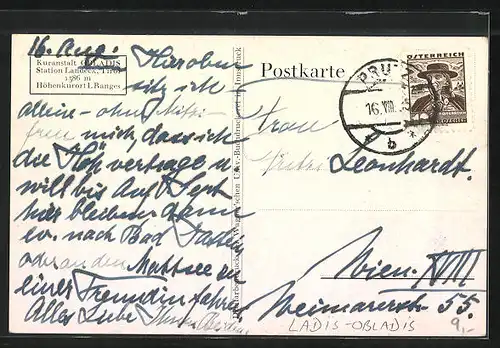 16. Aug. Hier oben
Kuranstalt OBLADIS
Station Landeck, Tirol
1386 m
Höhenkurort I. Ranges
sitz ich
allein - ohne
freu mich, dass ich
die Höh vertrage u
will bis Anf. Sept
hier bleiben, dann
ev. nach Bad
oder an den Mattsee zu
einer Freundin fahren.
Alles Liebe
Postkarte
ÖSTERREICH
PRUTZ
16. VIII.
b
Frau
Leonhardt.
Wien XVIII
Weimarerstr 55.
LADIS-OBLADIS
9,-